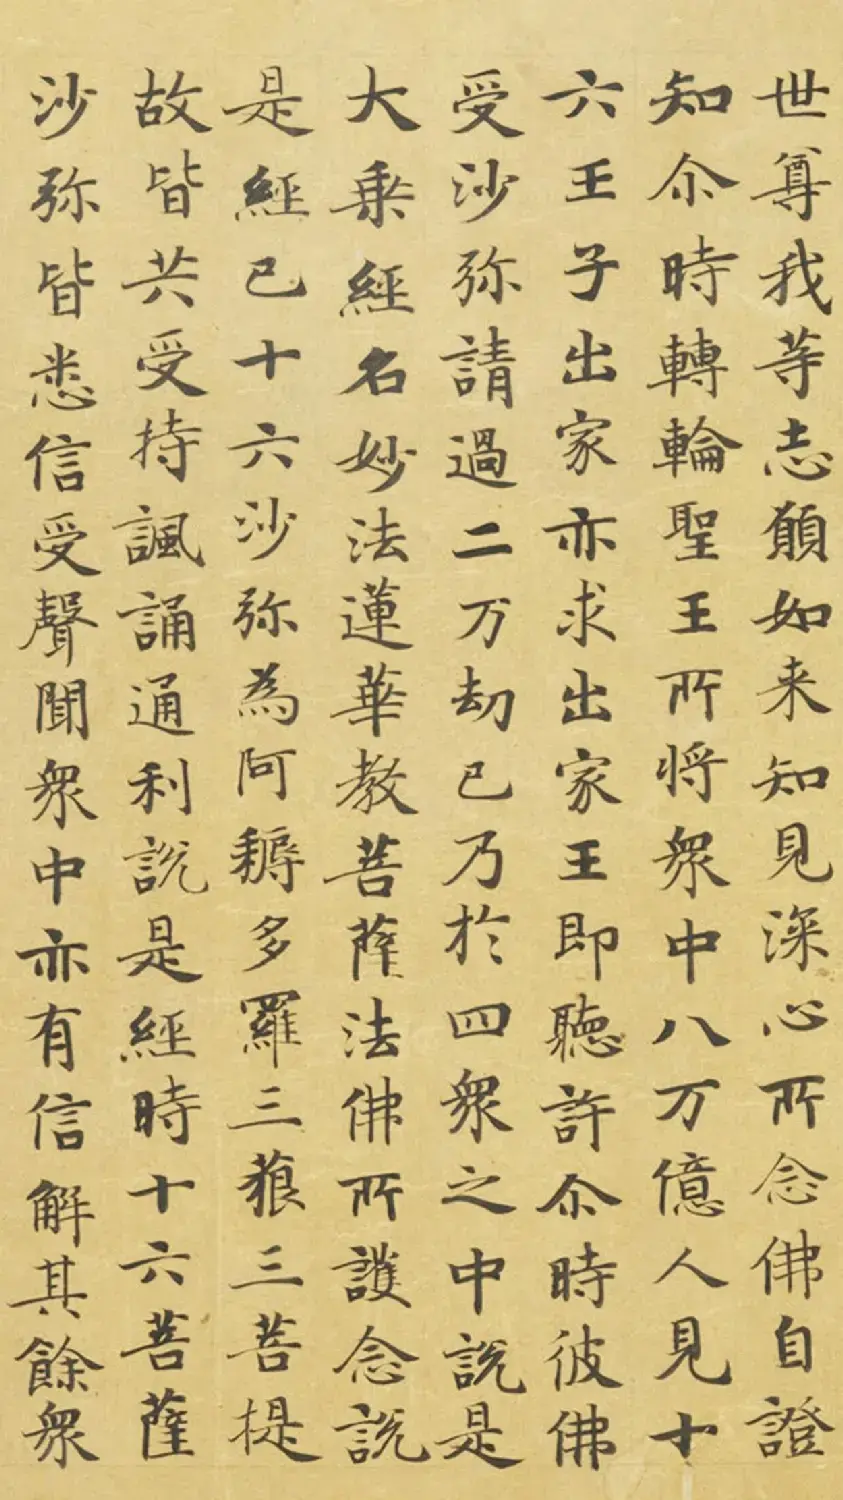 世尊我等志願如来知見深心所念佛自證
知尒時轉輪聖王所將衆中八万億人見十
六王子出家亦求出家王即聴許尒時彼佛
受沙弥請過二万劫已乃於四衆之中說是
大乗經名妙法蓮華教菩薩法佛所護念說
是經已十六沙弥為阿耨多羅三藐三菩提
故皆共受持諷誦通利說是經時十六菩薩
沙弥皆悉信受聲聞衆中亦有信解其餘衆